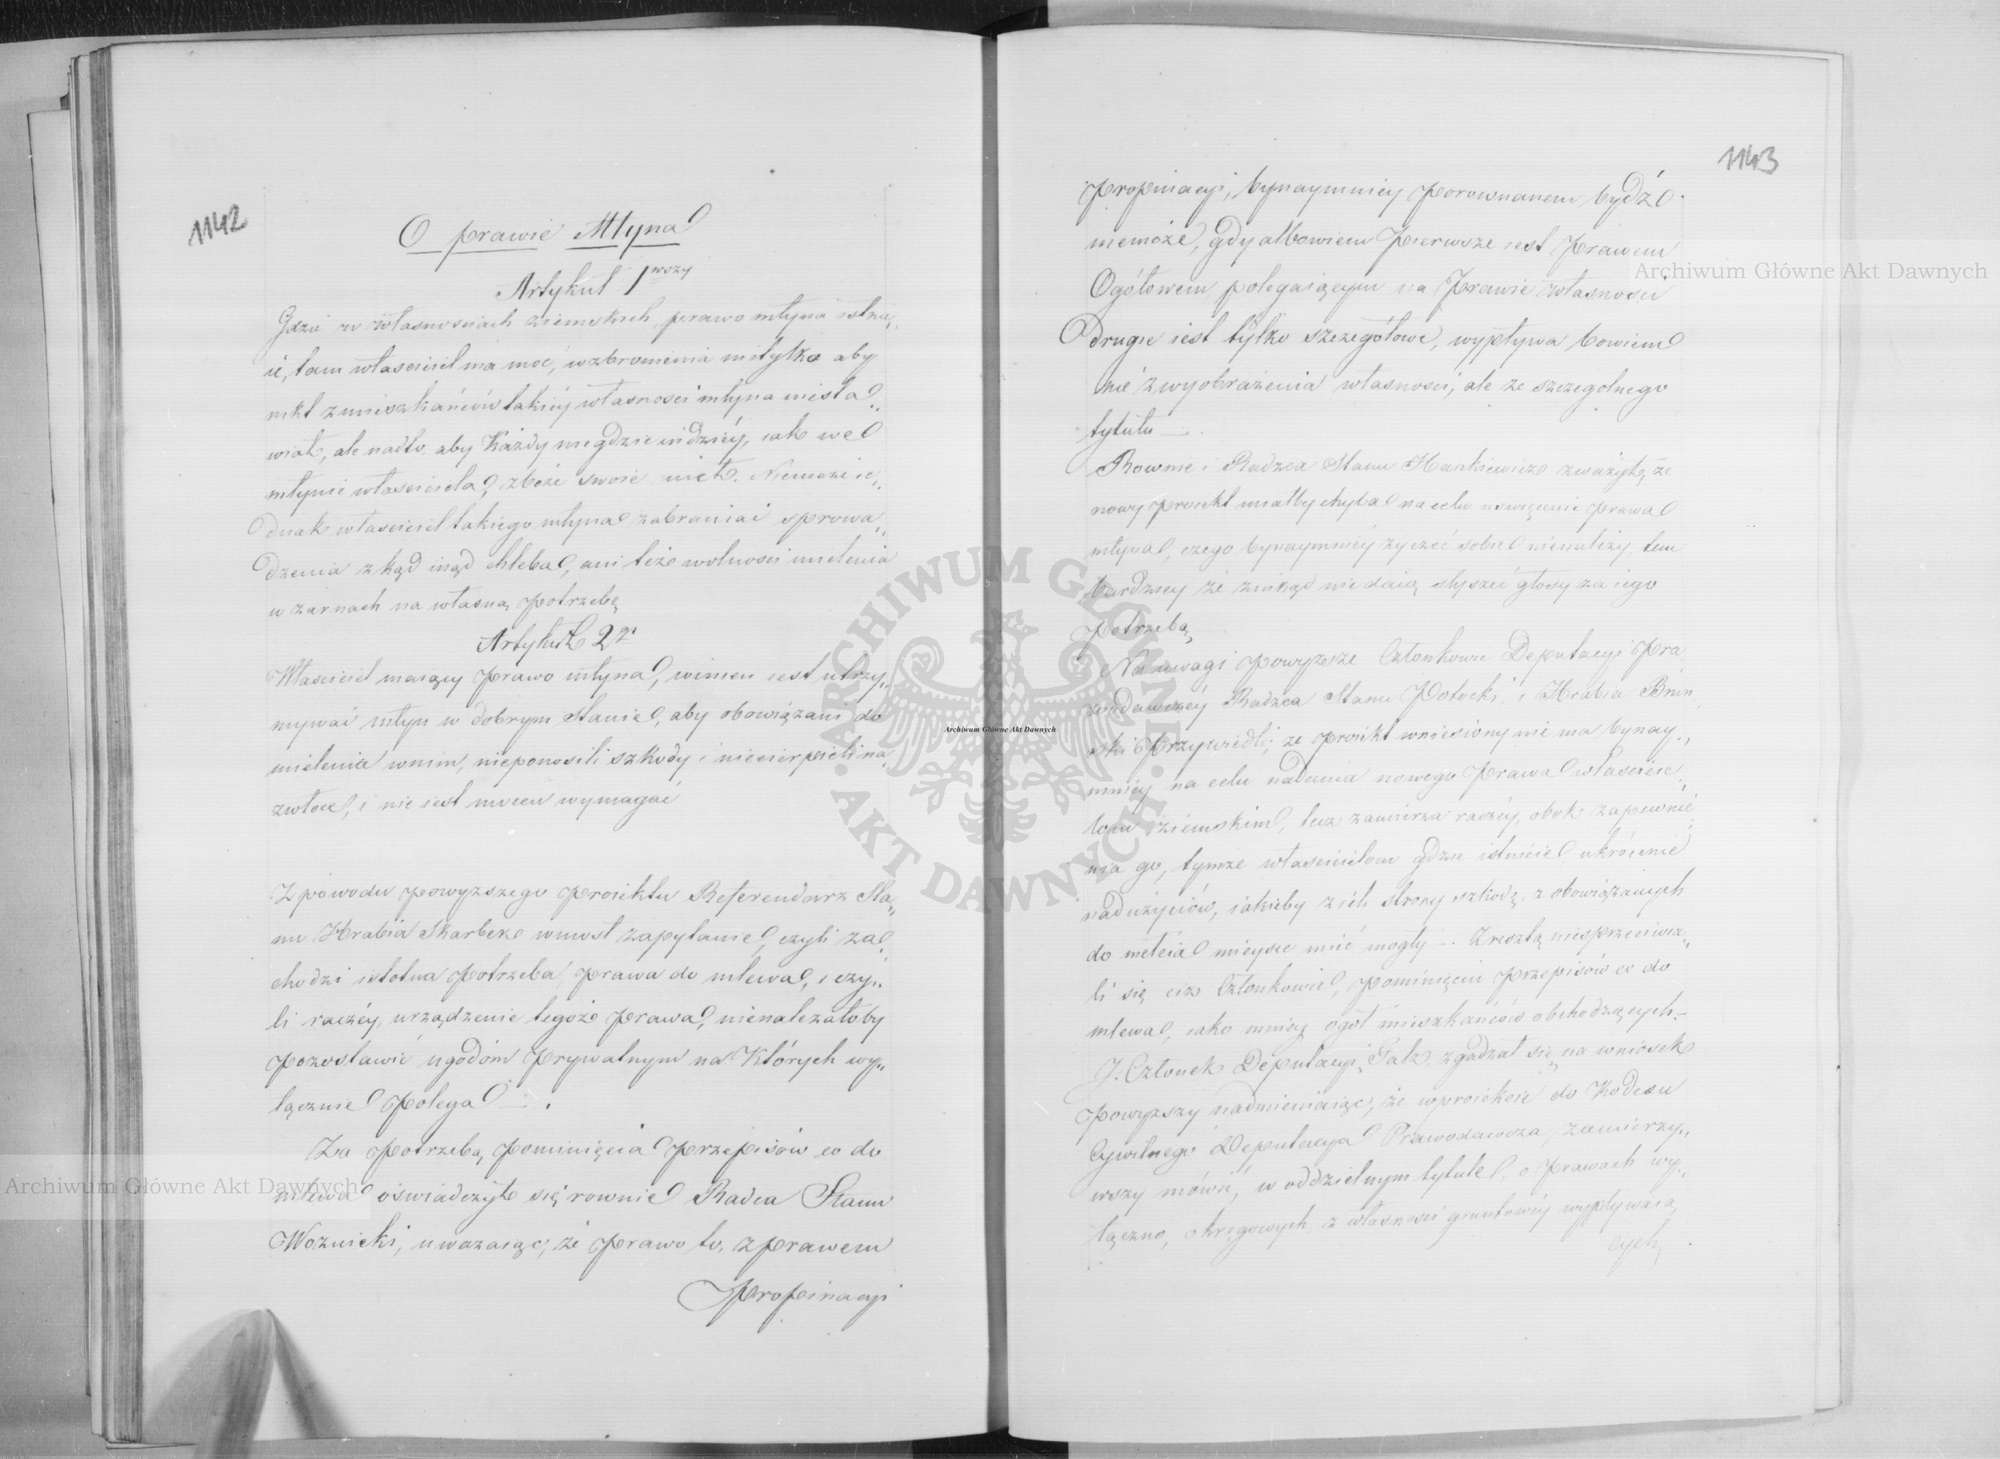 1142
O prawie Młyna
Artykuł 1wszy
Gdzie w własnościach ziemskich, prawo młyna istnie„
ie, tam właściciel ma moc, wzbronienia nietylko aby
nikt z mieszkańców takiéy własności młyna niesta„
wiał, ale nadto, aby Każdy niegdzieindziéy, iak we
młynie właściciela, zboże swoie mełł. Niemoże ie„
dnak właściciel takiego młyna zabraniać sprowa„
dzenia z kąd inąd chleba, ani też wolności mielenia
w żarnach na własną potrzebę
Artykuł 2gi
Właściciel maiący prawo młyna, winien iest utrzy„
mywać młyn w dobrym stanie, aby obowiązani do
mielenia w nim, nieponosili szkody i niecierpieli na
zwłoce, i nie iest mocen wymagać
Z powodu powyższego proiektu Referendarz Sta„
nu Hrabia Skarbek wniosł zapytanie, czyli za„
chodzi istotna potrzeba, prawa do mlewa, i czy„
li raczéy, urządzenie tegoż prawa, nienależałoby
pozostawić ugodom prywatnym na Których wy„
łącznie polega —.
Za potrzebą pominięcia przepisów co do
mlewa oświadczył się rownie Radca Stanu
Woźnicki, uważaiąc, że prawo to, z prawem
Propinacyi
1143
propinacyi, bynaymniéy porownanem bydź
niemoże, gdy albowiem pierwsze iest prawem
Ogółowem, polegaiącym na Prawie własności
drugie iest tylko szczegółowe, wypływa bowiem
nie z wyobrażenia własności, ale ze szczegolnego
tytułu —
Rownie i Radzca Stanu Hankiewicz zważył, że
nowy proiekt miałby chyba na celu uswięcenie prawa
młyna, czego bynaymniéy życzyć sobie nienależy, tem
bardziey że znikąd nie daią słyszeć głosy za iego
potrzebą,
Na uwagi powyższe Członkowie Deputacyi Pra„
wodawczéy Radzca Stanu Potocki i Hrabia Bnin„
ski przywiedli, że proiekt wniesiony nie ma bynay„
mniéy na celu nadania nowego prawa właścicie„
lom ziemskim, lecz zamierza raczéy, obok zapewnie„
nia go, tymże właścicielom gdzie istnieie, ukrócenie
nadużyciów, iakieby z ich strony szkodą z obowiązanych
do mełcia mieysce mieć mogły —. Zresztą niesprzeciwia„
li się ciż Członkowie, pominięciu przepisów co do
mlewa, iako mniéy ogół mieszkańców obchodzących—
J. Członek Deputacyi zgadzał się na wniosek
powyższy nadmieniaiąc, że w proiekcie do Kodexu
Cywilnego Deputacya Prawodawcza, zamierzy„
wszy mówić, w oddzielnym tytule, o prawach wy„
łączno, okręgowych z własności gruntowéy wypływaią
cych
Archiwum Główne Akt Dawnych
Archiwum Główne Akt Dawnych
Archiwum Główne Akt Dawnych
ARCHIWUM GŁÓWNE AKT DAWNYCH